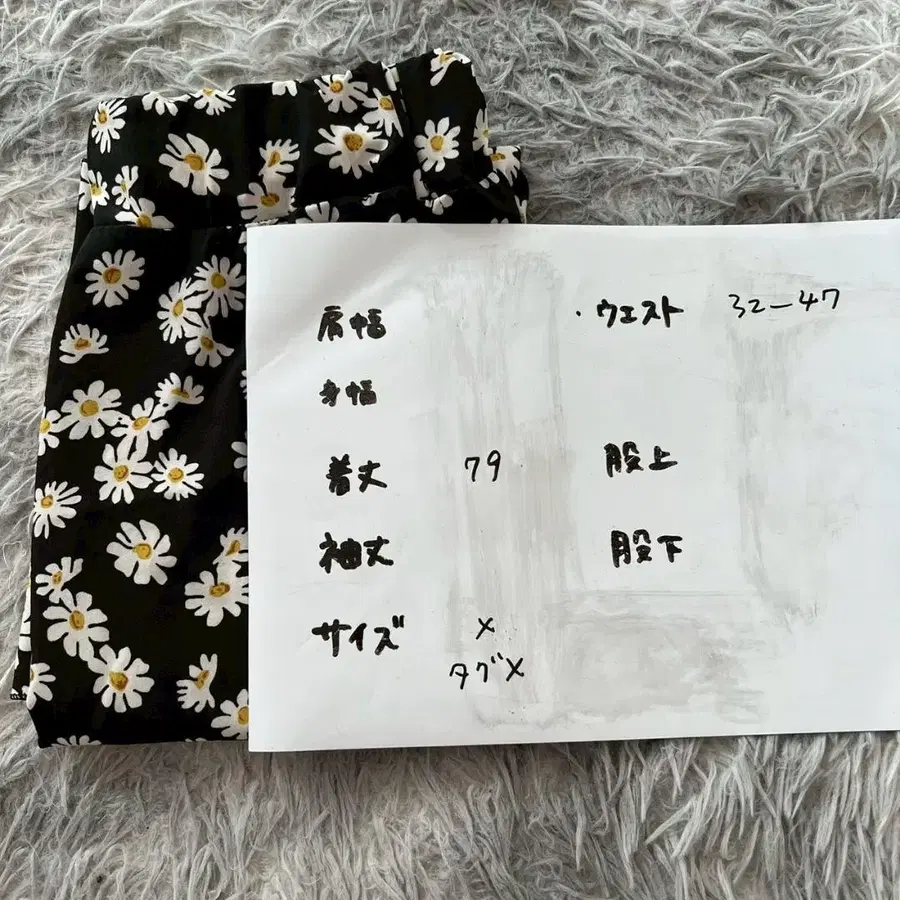 肩幅
身幅
着丈 79
袖丈
サイズ ×
タグ×
・ウエスト 32-47
股上
股下